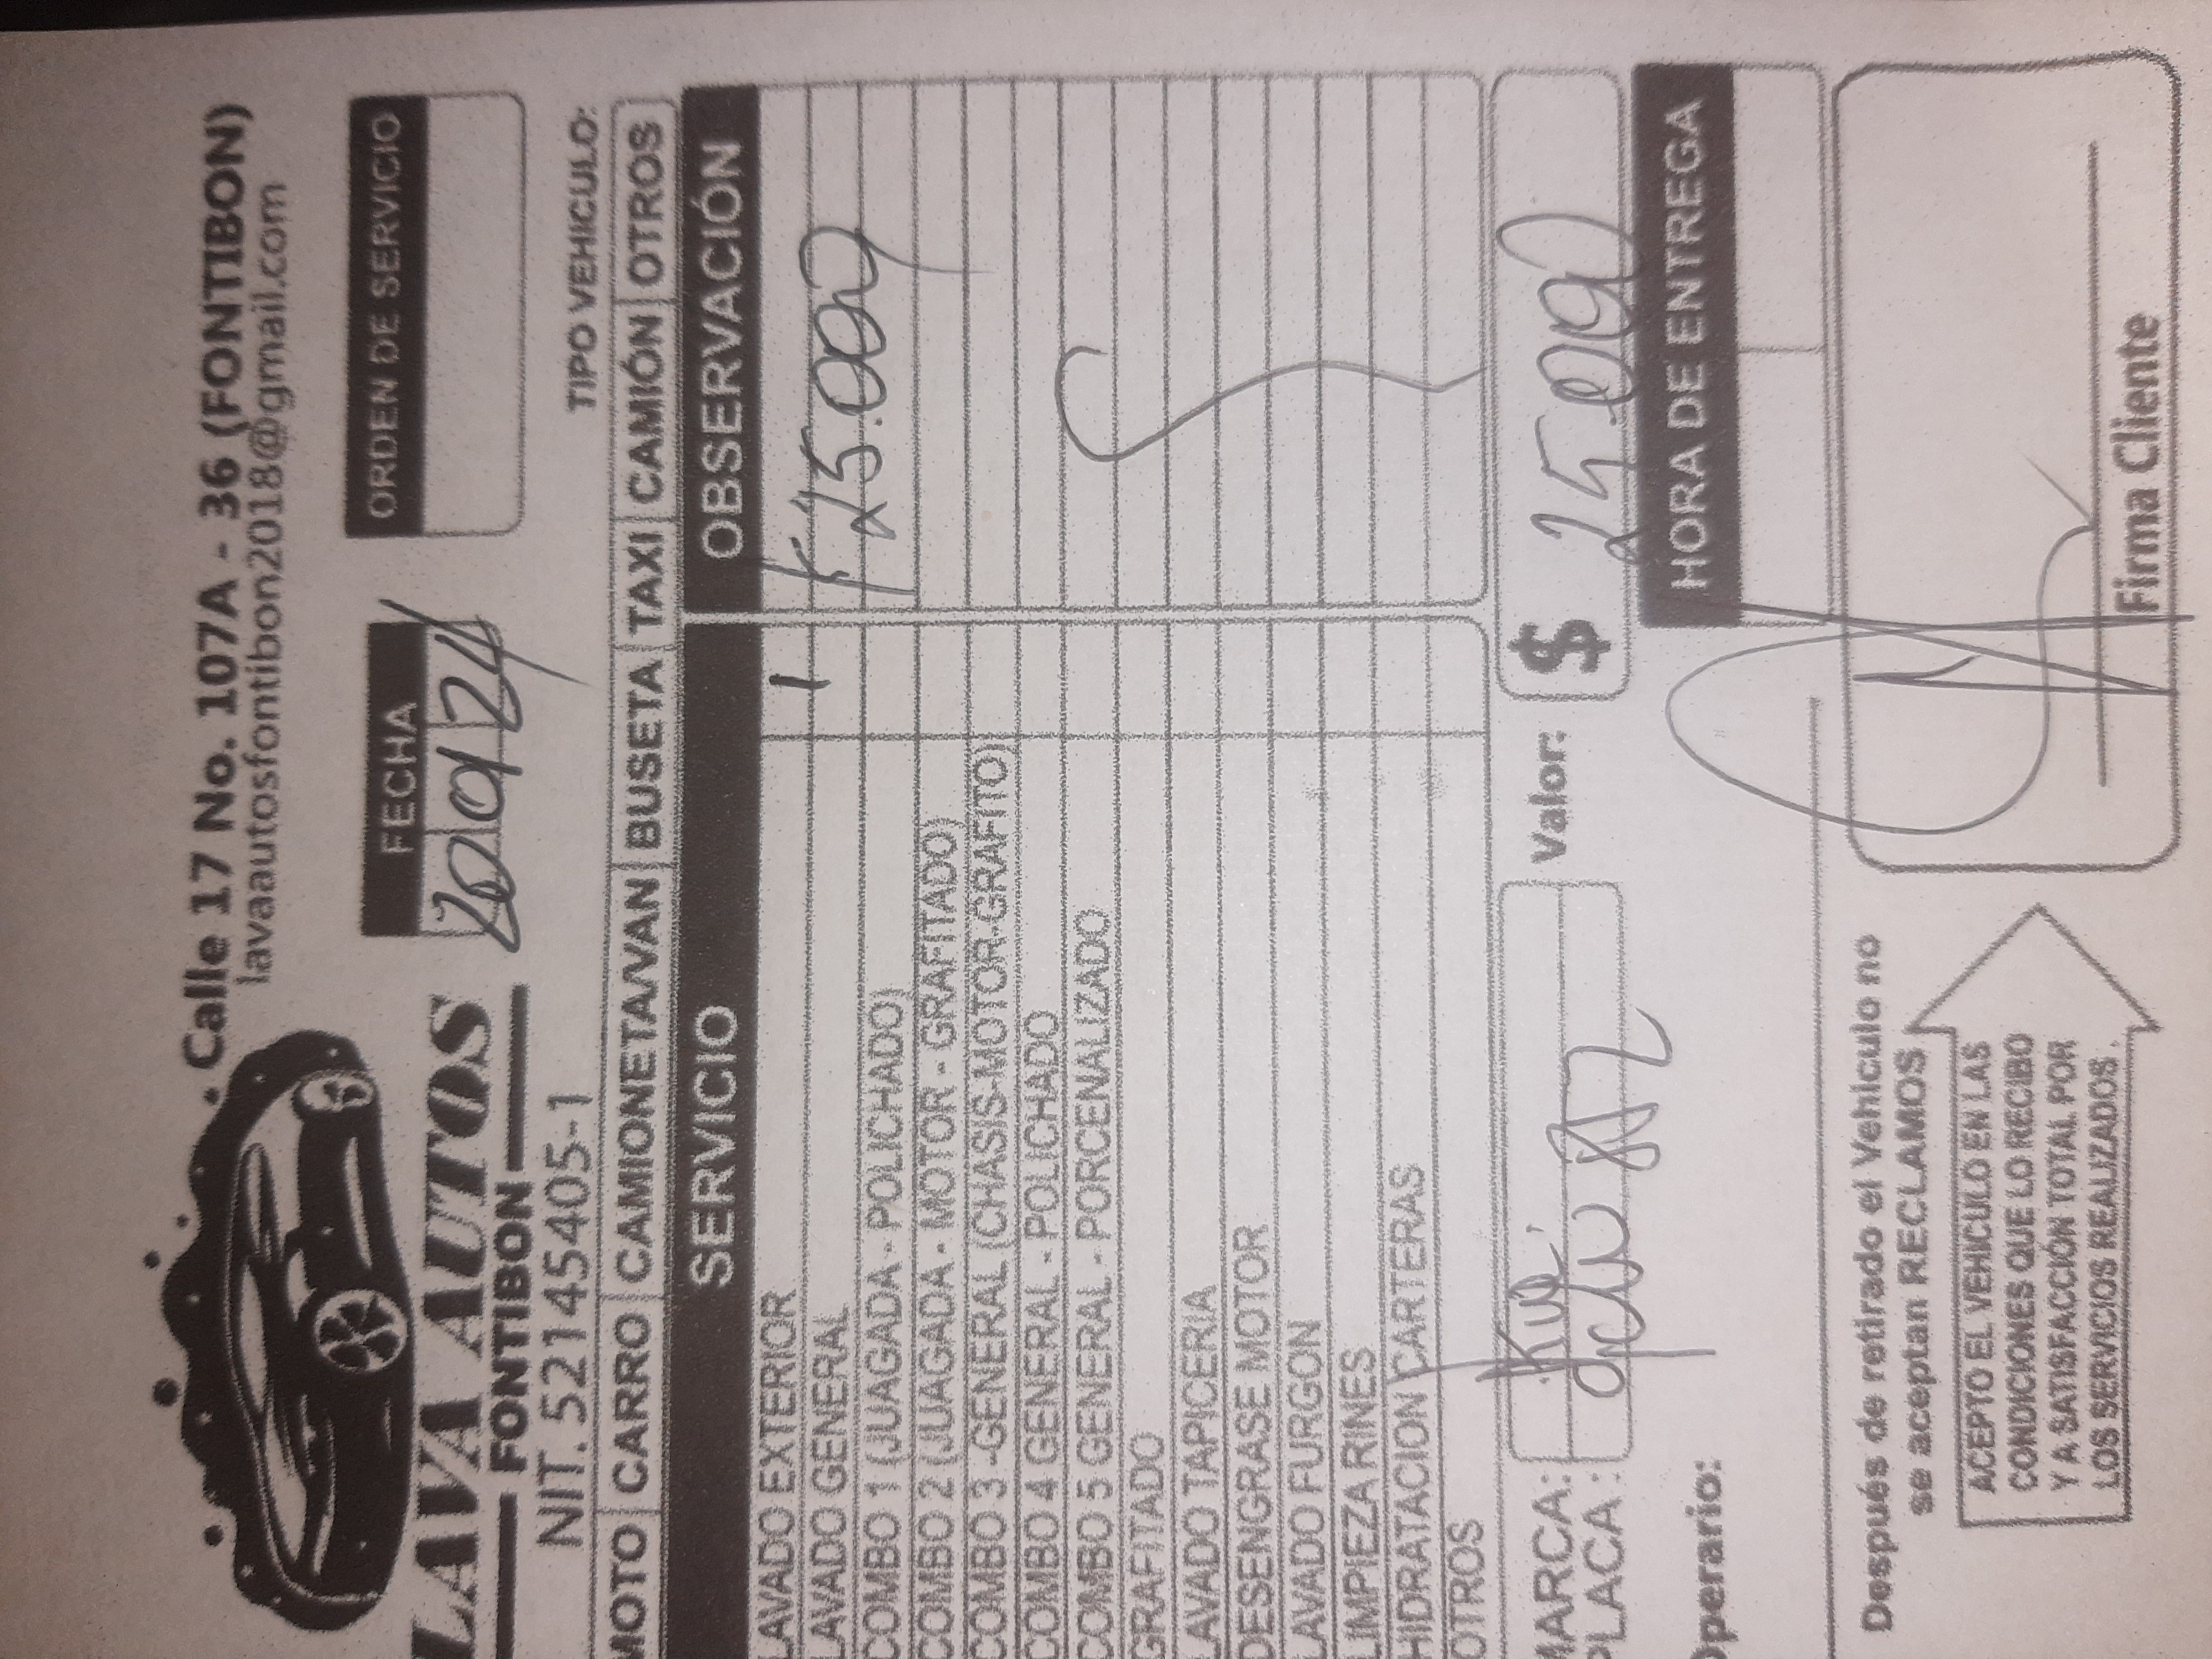 Calle 17 No. 107A - 36 (FONTIBON)
lavaautosfontibon2018@gmail.com
LAVA AUTOS
FONTIBON
NIT. 52145405-1
FECHA
20 01 24
ORDEN DE SERVICIO
TIPO VEHICULO:
MOTO CARRO CAMIONETA/VAN BUSETA TAXI CAMIÓN OTROS
SERVICIO OBSERVACIÓN
LAVADO EXTERIOR 1
LAVADO GENERAL 25.000
COMBO 1 (JUAGADA - POLICHADO)
COMBO 2 (JUAGADA - MOTOR - GRAFITADO)
COMBO 3 -GENERAL (CHASIS-MOTOR-GRAFITO)
COMBO 4 GENERAL - POLICHADO
COMBO 5 GENERAL - PORCENALIZADO
GRAFITADO
LAVADO TAPICERIA
DESENGRASE MOTOR
LAVADO FURGON
LIMPIEZA RINES
HIDRATACION CARTERAS
OTROS
MARCA:
PLACA :
Valor: $ 25.000
Operario:
HORA DE ENTREGA
Después de retirado el Vehiculo no
se aceptan RECLAMOS
ACEPTO EL VEHICULO EN LAS
CONDICIONES QUE LO RECIBO
Y A SATISFACCIÓN TOTAL POR
LOS SERVICIOS REALIZADOS.
Firma Cliente